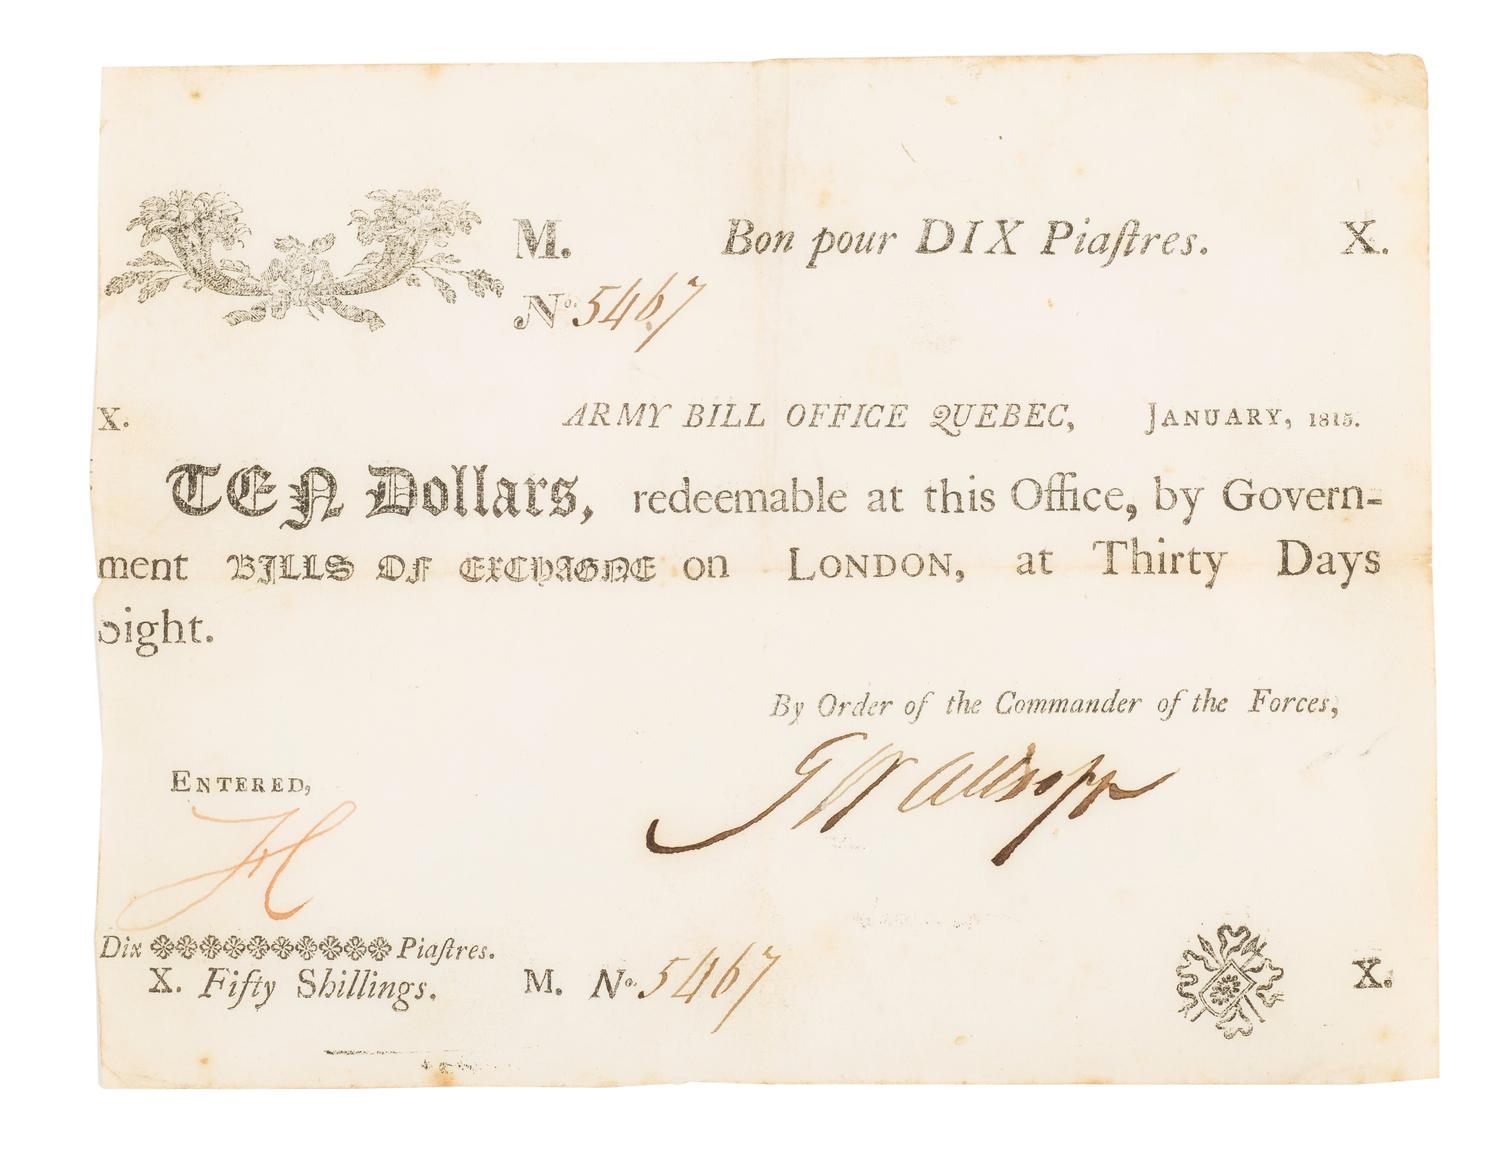 M. Bon pour DIX Piaſtres. X.
No. 5467
X. ARMY BILL OFFICE QUEBEC, JANUARY, 1815.
TEN Dollars, redeemable at this Office, by Govern-
ment BILLS OF EXCHAGNE on LONDON, at Thirty Days
Sight.
By Order of the Commander of the Forces,
G W Allsopp
ENTERED,
Dix Piaſtres.
X. Fifty Shillings. M. No. 5467 X.